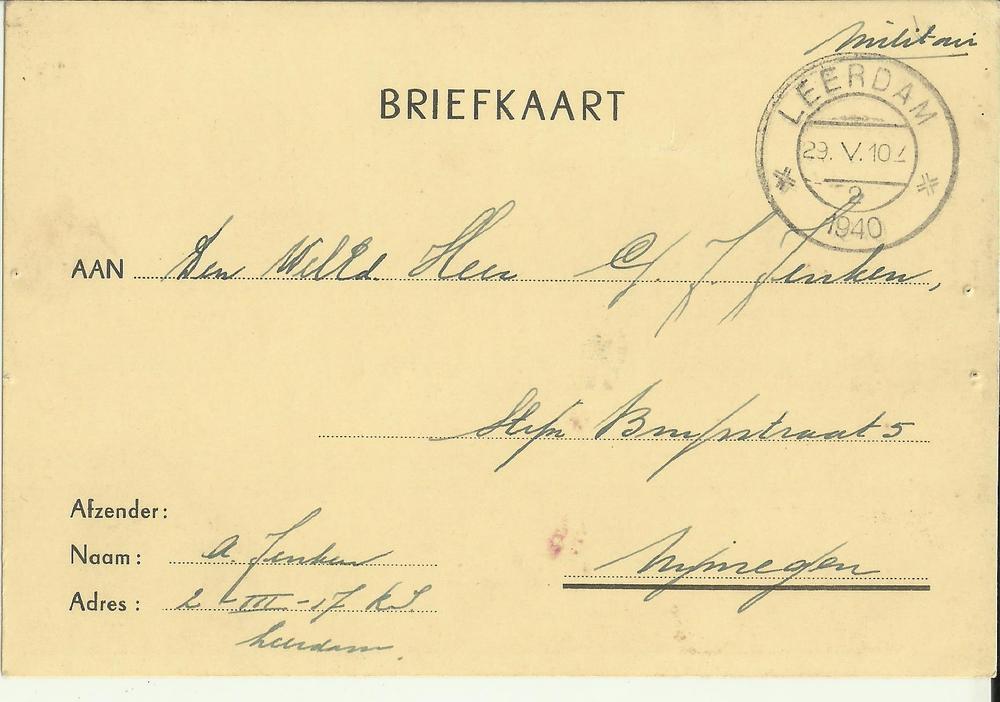 Militair
BRIEFKAART
LEERDAM
29. V. 10
2
1940
AAN Den Heer J. Jenken,
5
Afzender:
Nijmegen
Naam: A. Jenken
Adres: 2 - III - 17
Leerdam